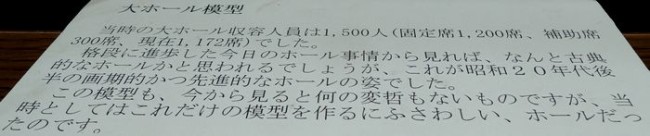 大ホール模型
当時の大ホール収容人員は1,500人(固定席1,200席、補助席
300席、現在1,172席)でした。
格段に進歩した今日のホール事情から見れば、なんと古典
的なホールかと思われるでしょうが、これが昭和20年代後
半の画期的かつ先進的なホールの姿でした。
この模型も、今から見ると何の変哲もないものですが、当
時としてはこれだけの模型を作るにふさわしい、ホールだっ
たのです。